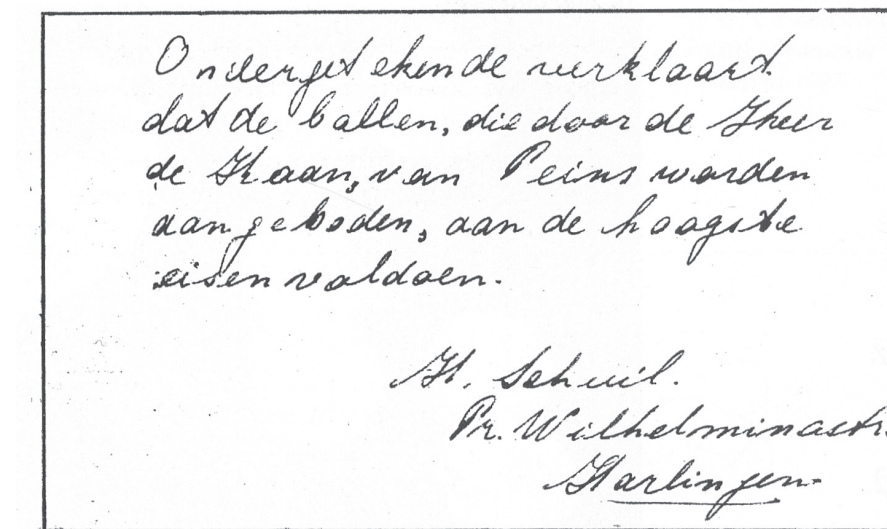 Ondergetekende verklaart
dat de ballen, die door de Heer
de Haan, van Peins worden
aangeboden, aan de hoogste
eisen voldoen.
H. Schuil.
Pr. Wilhelminastr.
Harlingen